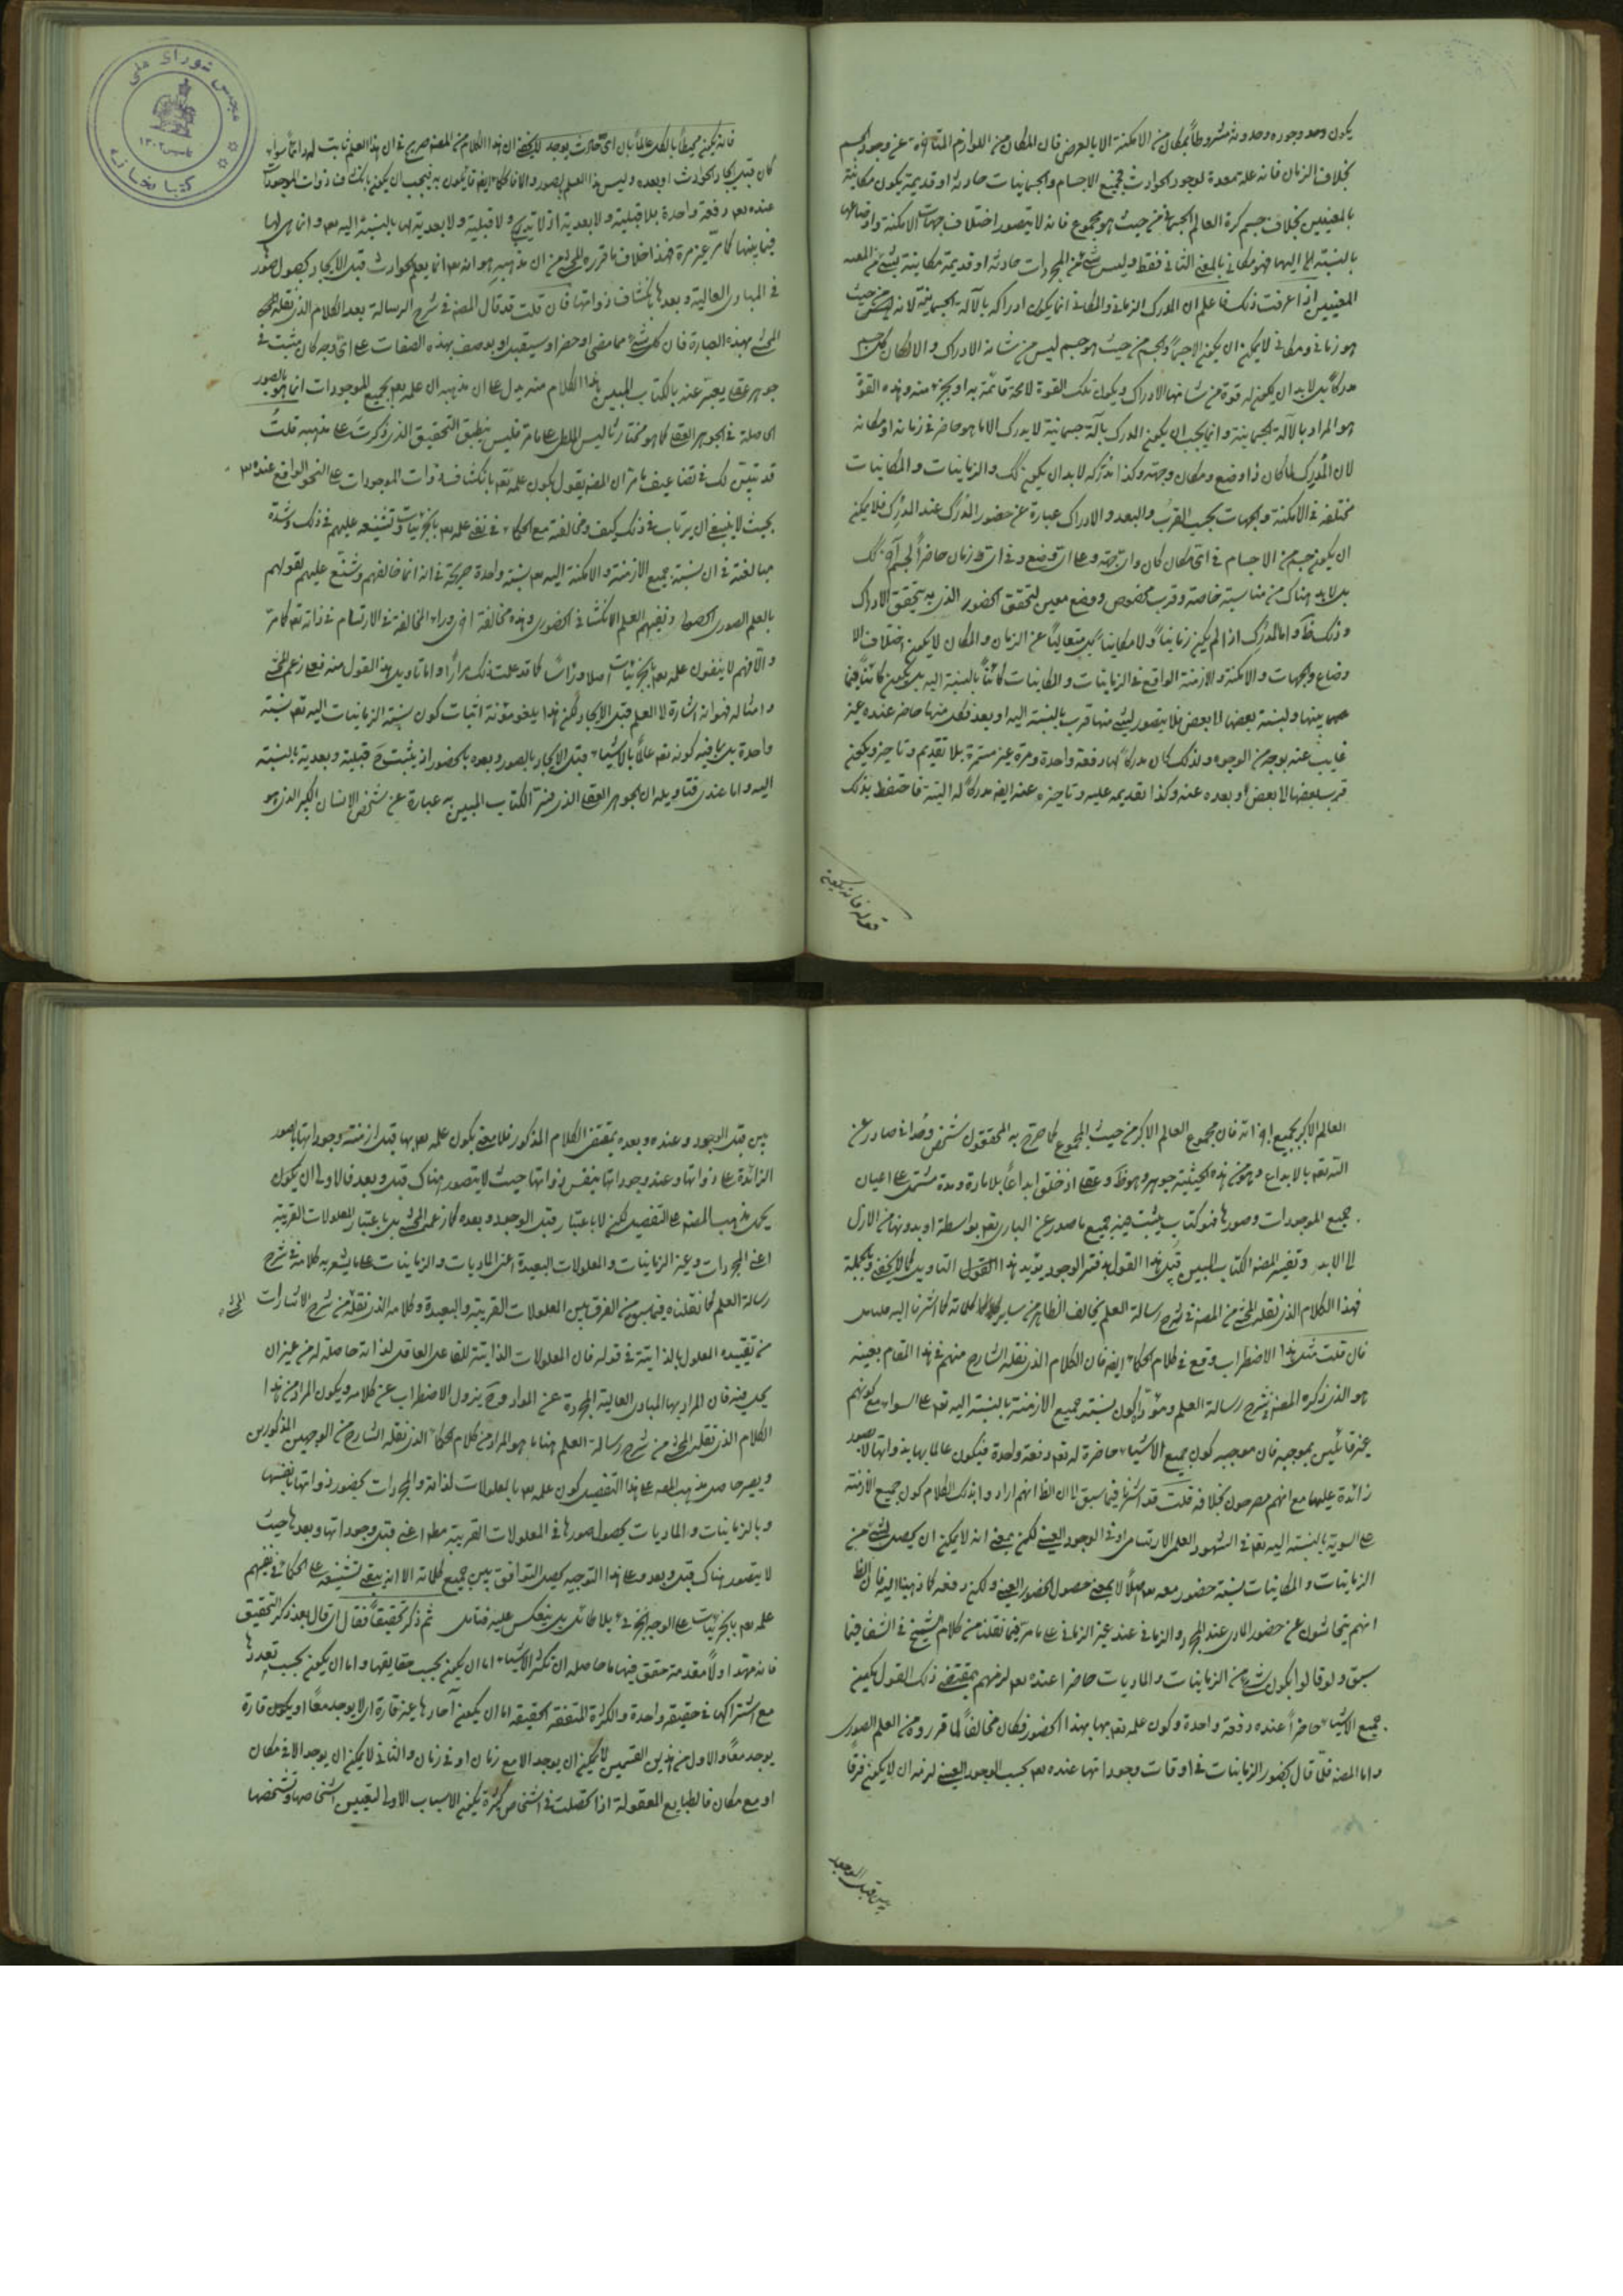 يكون وجوده وحدوثه مشروطاً بمكان من الامكنة الا بالعرض فان المكان من اللوازم المتأخرة عن وجود الجسم
بخلاف الزمان فانه علة معدة لوجود الحوادث فجميع الاجسام والجسمانيات حادثة او قديمة يكون مكانية
بالمعنيين بخلاف جسم كرة العالم الجسماني من حيث هو مجموع فانه لا يتصور اختلاف جهات الامكنة واوضاعها
بالنسبة اليها فهو مكاني بالمعنى الثاني فقط وليس شئ من المجردات حادثة او قديمة مكانية بشئ من
المعنيين اذا عرفت ذلك فاعلم ان المدرك الزماني والمكاني انما يكون ادراكه بالآلة الجسمانية لانه من حيث
هو زماني ومكاني لا يمكن ان يكون الا جسماً والجسم من حيث هو جسم ليس من شانه الادراك والا لكان كل جسم
مدركاً بل لا بد ان يكون له قوة من شانها الادراك ويكون تلك القوة لا محة قائمة به او بجزء منه وهذه القوة
هو المراد بالآلة الجسمانية وانما يجب ان يكون المدرك بآلة جسمانية لا يدرك الا ما هو حاضر في زمانه او مكانه
لان المدرك لما كان ذا وضع ومكان وجهة وكذا مدركه لا بد ان يكون كك والزمانيات والمكانيات
مختلفة في الامكنة والجهات بحسب القرب والبعد والادراك عبارة عن حضور المدرك عند المدرك فلا يمكن
ان يكون جسم من الاجسام في اى مكان كان واى جهة وعلى اى وضع وفي اى زمان حاضراً لجسم آخر كك
بل لا بد هناك من مناسبة خاصة وقرب مخصوص ووضع معين لتحقق الحضور الذي به يتحقق الادراك
وذلك ظ واما المدرك اذا لم يكن زمانياً ولا مكانياً بل متعالياً عن الزمان والمكان لا يكون اختلاف الا
وضاع والجهات والامكنة والازمنة الواقع في الزمانيات والمكانيات كائناً بالنسبة اليه بل يكون كائناً فيما
بينها ولنسبة بعضها الى بعض فلا يتصور لشئ منها قرب بالنسبة اليه او بعد فكل منها حاضر عنده غير
غايب عنه بوجه من الوجوه ولذلك كان مدركاً لها دفعة واحدة ومرة غير مستمرة بلا تقديم وتاخير ويكون
قرب بعضها الى بعض او بعده عنه وكذا تقديمه عليه وتاخيره عنه ايضا مدركاً له البتة فاحتفظ بذلك
قوله فانه يكون
فانه يكون محيطاً بالكل عالماً بان اى حادث يوجد لا يخفى ان هذا الكلام من المصنف صريح في ان هذا العلم ثابت له دائماً سواء
كان قبل ايجاد الحوادث او بعده وليس هذا العلم بصور والا فالحكماء ايضا قائلون به فيجب ان يكون بانكشاف ذوات الموجودات
عنده تعالى دفعة واحدة بلا قبلية ولا بعدية اذ لا ولا قبلية ولا بعدية لها بالنسبة اليه تعالى وانما هى لها
فيما بينها كما مر غير مرة فهذا خلاف ما قرره المحشي من ان مذهبه هو انه تعالى انما يعلم الحوادث قبل الايجاد بحصول صور
في المبادى العالية وبعدها بانكشاف ذواتها فان قلت قد قال المصنف في شرح الرسالة بعد الكلام الذي نقله
المحشي بهذه العبارة فان كل شئ مما مضى او حضر او سيقبل او يوصف بهذه الصفات على اى وجه كان مثبت في
جوهر عقلي يعبر عنه بالكتاب المبين هذا الكلام منه يدل على ان مذهبه ان علمه تعالى بجميع الموجودات انما هو بالصور
الحاصلة في الجوهر العقلي كما هو مختار ثاليس الملطي على ما مر فليس ينطبق التحقيق الذي ذكرت على مذهبه قلت
قد تبين لك في تضاعيف ما مر ان المصنف يقول بكون علمه تعالى بانكشاف ذوات الموجودات على النحو الواقع عنده تعالى
بحيث لا ينبغي ان يرتاب في ذلك كيف ومخالفته مع الحكماء في نفي علمه تعالى بالجزئيات وتشنيعه عليهم في ذلك وشدة
مبالغته في ان نسبة جميع الازمنة والامكنة اليه تعالى نسبة واحدة صريحة في انه انما خالفهم وشنع عليهم لقولهم
بالعلم الصوري الحصولي ونفيهم العلم الانكشافي الحضوري وهذه مخالفة اخرى وراء المخالفة في الارتسام في ذاته تعالى كما مر
والا فهم لا ينفون علمه تعالى بالجزئيات اصلا وراساً كما قد علمت ذلك مراراً واما تاويل هذا القول منه فعلى زعم المحشي
وامثاله فهو انه اشارة الى العلم قبل الايجاد لكن هذا يلغو مؤنة اثبات كون نسبة الزمانيات اليه تعالى نسبة
واحدة بل ينافيه كونه تعالى عالماً بالاشياء قبل الايجاد بالصور وبعده بالحضور اذ يثبت ح قبلية وبعدية بالنسبة
اليه واما عندى فتاويله ان الجوهر العقلي الذي فسر الكتاب المبين به عبارة عن شخص الانسان الكبير الذي هو
العالم الاكبر بجميع اجزائه فان مجموع العالم الاكبر من حيث المجموع كما صرح به المحققون شخص وحداني صادر عن
الله تعالى بالابداع وهو من هذه الحيثية جوهر وهو ظ وعقلي اذ خلق ابداعاً بلا مادة ومدة مشتمل على اعيان
جميع الموجودات وصورها فهو كتاب يثبت فيه جميع ما صدر عن الباري تعالى بواسطة او بدونها من الازل
الى الابد وتفسير المصنف الكتاب المبين قبيل هذا القول بدفتر الوجود يؤيد هذا التاويل كما لا يخفى وبالجملة
فهذا الكلام الذي نقله المحشي من المصنف في شرح رسالة العلم يخالف الظاهر من ساير كلماته كما اشرنا اليه
فان قلت مثل هذا الاضطراب وقع في كلام الحكماء ايضا فان الكلام الذي نقله الشارح منهم في هذا المقام بعينه
هو الذي ذكره المصنف في شرح رسالة العلم ومؤداه كون نسبة جميع الازمنة بالنسبة اليه تعالى على السواء مع كونهم
غير قائلين بموجبه فان موجبه كون جميع الاشياء حاضرة له تعالى دفعة واحدة فيكون عالما بها بذواتها لا بصور
زائدة عليها مع انهم مصرحون بخلافه قلت قد اشرنا فيما سبق الى ان الظ انهم ارادوا بذلك الكلام كون جميع الازمنة
على السوية بالنسبة اليه تعالى في الشهود العلمي الارتسامي او في الوجود العيني لكن بمعنى انه لا يمكن ان يحصل لشئ من
الزمانيات والمكانيات نسبة حضور معه تعالى اصلاً لا بمعنى حصول الحضور العيني ولكن دفعة كما ذهبنا اليه فان الظ
انهم يتحاشون عن حضور المادى عند المجرد والزماني عند غير الزماني على ما مر فيما نقلنا من كلام الشيخ في الشفا فيما
سبق ولو قالوا بكون شئ من الزمانيات والماديات حاضرا عنده تعالى لزمهم بمقتضى ذلك القول بكون
جميع الاشياء حاضراً عنده دفعة واحدة وكون علمه تعالى بها بهذا الحضور فكان مخالفاً لما قرروه من العلم الصورى
واما المصنف فلما قال بحضور الزمانيات في اوقات وجوداتها عنده تعالى بحسب الوجود العيني لزمه ان لا يكون فرقا
بين قبل الوجود
بين قبل الوجود وعنده وبعده بمقتضى الكلام المذكور فلا معنى لكون علمه تعالى بها قبل ازمنة وجوداتها بالصور
الزائدة على ذواتها وعند وجوداتها بنفس ذواتها حيث لا يتصور هناك قبل وبعد فالاولى ان يكون
يحمل مذهب المصنف على التفصيل لكن لا باعتبار قبل الوجود وبعده كما زعمه المحشي بل باعتبار المعلولات القريبة
اعنى المجردات وغير الزمانيات والمعلولات البعيدة اعنى الماديات والزمانيات على ما يشعر به كلامه في شرح
رسالة العلم كما نقلناه فيما سبق من الفرق بين المعلولات القريبة والبعيدة وكلامه الذي نقله من شرح الاشارات المحشي
من تقييده المعلول بالذاتية في قوله فان المعلولات الذاتية للفاعل العاقل لذاته حاصلة له من غير ان
يحل فيه فان المراد بها المبادى العالية المجردة عن المواد وح يزول الاضطراب عن كلامه ويكون المراد من هذا
الكلام الذي نقله المحشي من شرح رسالة العلم هنا ما هو المراد من كلام الحكماء الذي نقله الشارح من الوجهين المذكورين
ويصير حاصل مذهب المصنف على هذا التفصيل كون علمه تعالى بالمعلولات لذاته والمجردات بحضور ذواتها بانفسها
وبالزمانيات والماديات بحصول صورها في المعلولات القريبة مطلقا اعنى قبل وجوداتها وبعدها حيث
لا يتصور هناك قبل وبعد وعلى هذا التوجيه يحصل التوافق بين جميع كلماته الا انه يبقى تشنيعه على الحكماء في نفيهم
علمه تعالى بالجزئيات على الوجه الجزئي بلا طائل بل ينعكس عليه فتامل ثم ذكر تحقيقاً فقال اى قال بعد ذكر التحقيق
فانه مهّد اولاً مقدمة حقق فيها ما حاصله ان تكثر الاشياء اما ان يكون بحسب حقايقها واما ان يكون بحسب تعددها
مع اشتراكها في حقيقة واحدة والكثرة المتفقة الحقيقة اما ان يكون آحادها غير قارة اى لا يوجد معاً او يكون قارة
يوجد معاً والاول من هذين القسمين لا يمكن ان يوجد الا مع زمان او في زمان والثاني لا يمكن ان يوجد الا في مكان
او مع مكان فالطبايع المعقولة اذا تحصلت في اشخاص كثيرة يكون الاسباب الاول لتعيين اشخاصها وتشخصها